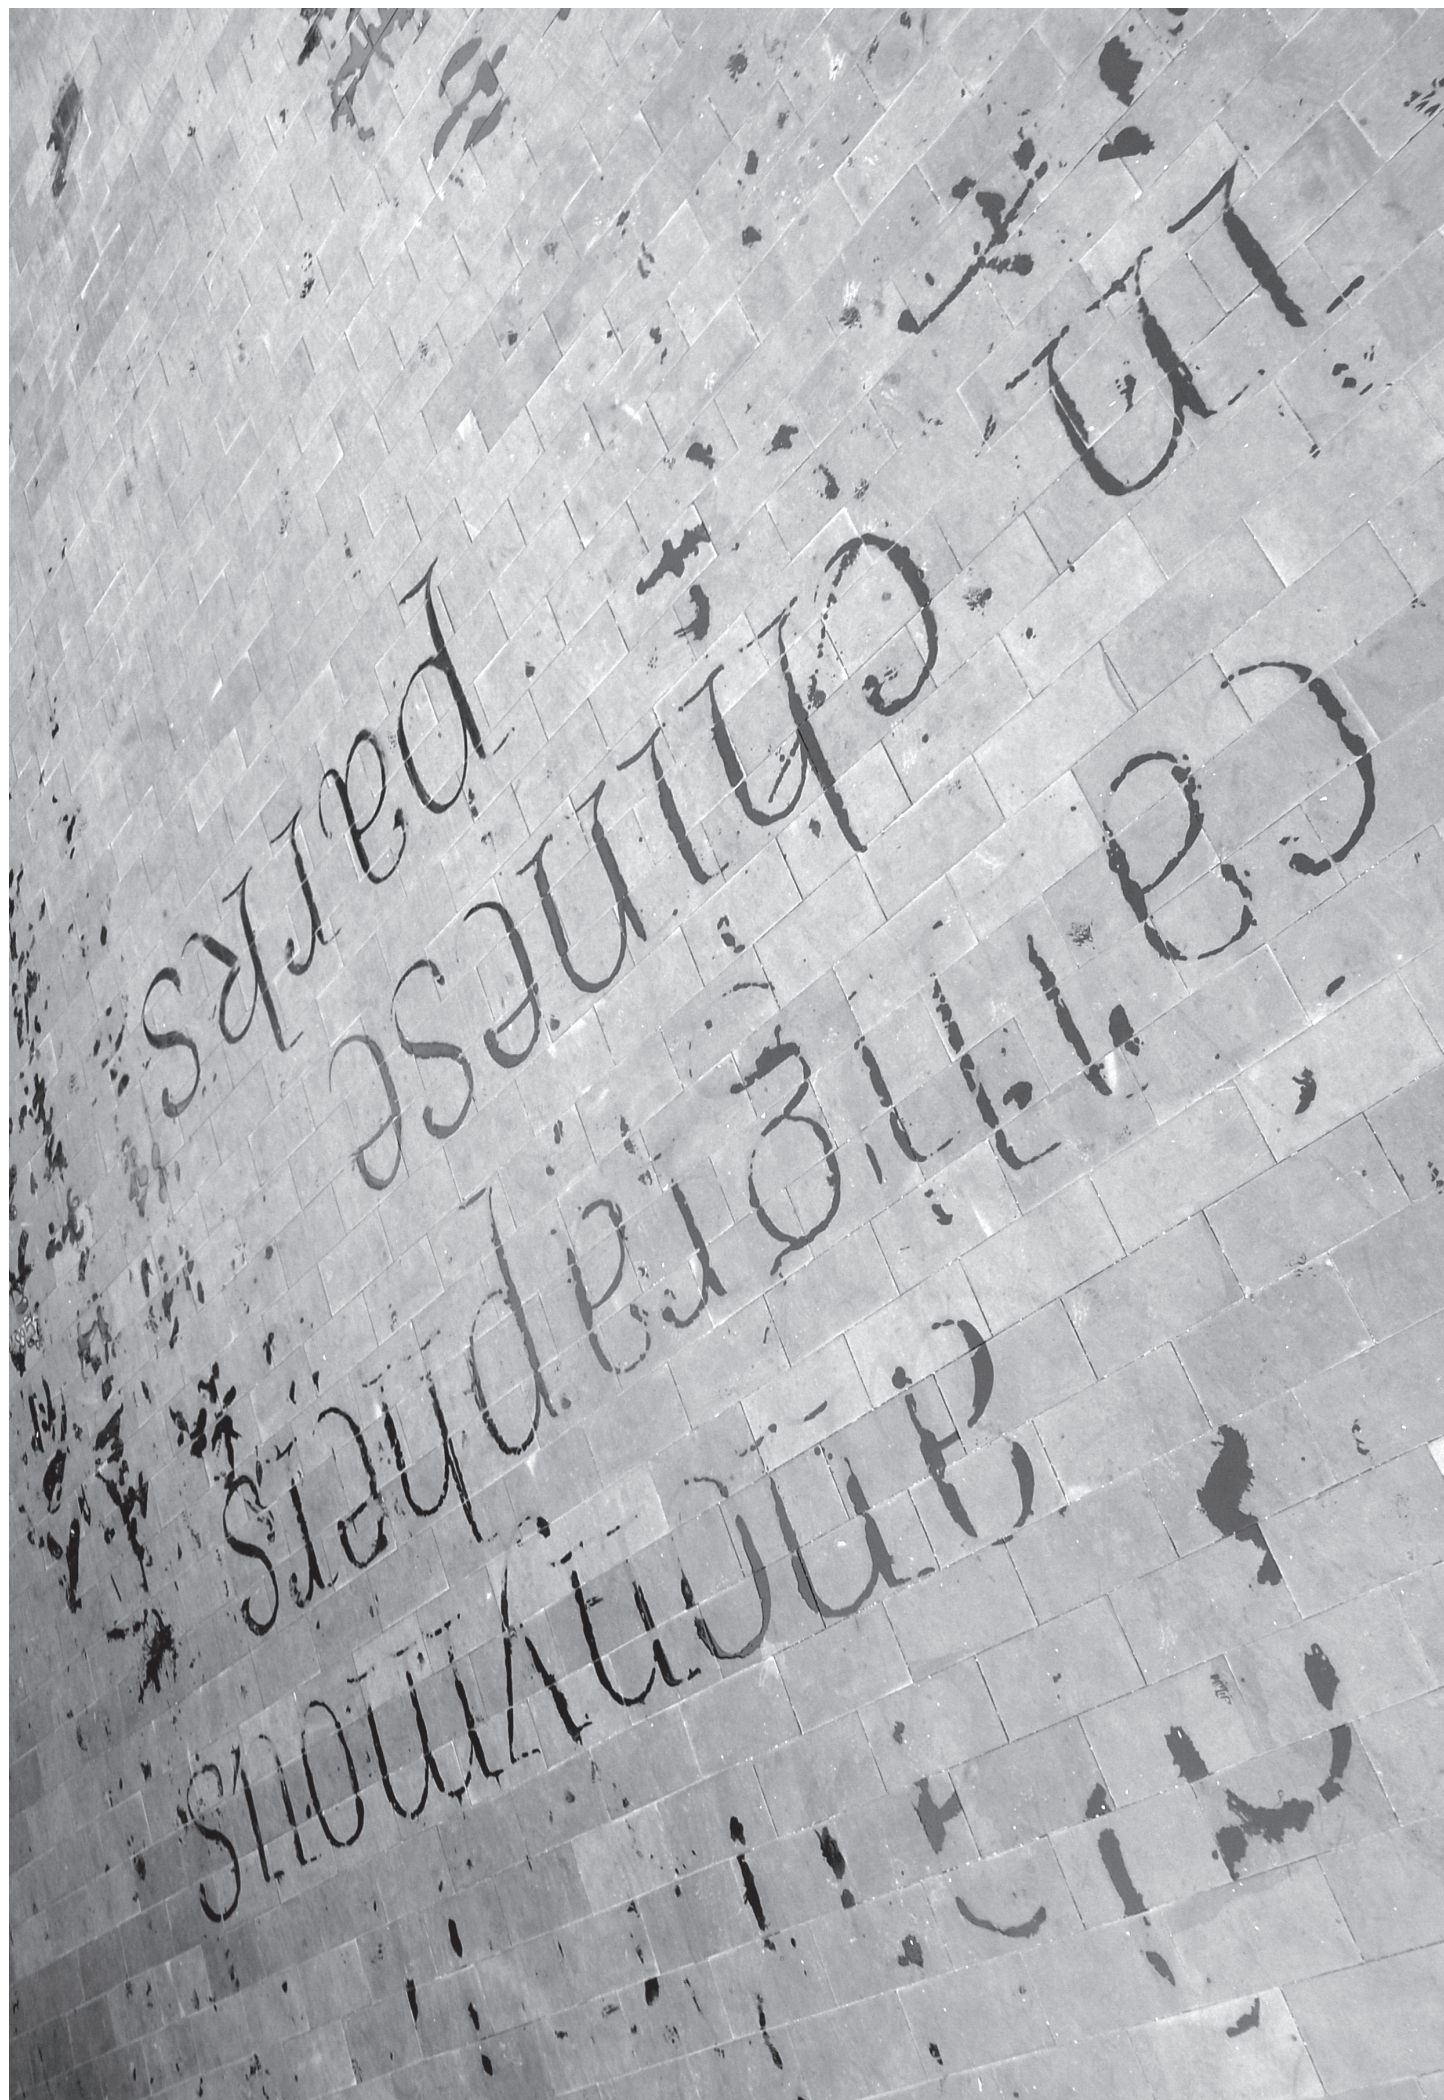 anonymous
calligraphers
in chinese
parks